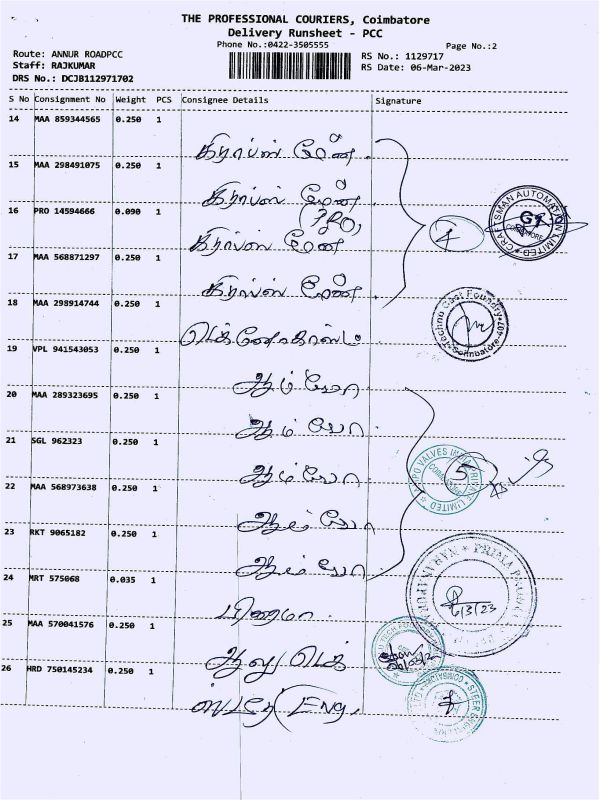 THE PROFESSIONAL COURIERS, Coimbatore
Delivery Runsheet - PCC
Phone No.:0422-3505555
Page No.:2
Route: ANNUR ROADPCC
Staff: RAJKUMAR
DRS No.: DCJB112971702
RS No.: 1129717
RS Date: 06-Mar-2023
S No Consignment No Weight PCS Consignee Details Signature
14 MAA 859344565 0.250 1
கிராப்ஸ் மேன்
15 MAA 298491075 0.250 1
கிராப்ஸ் மேன்
16 PRO 14594666 0.090 1
(PRO)
கிராப்ஸ் மேன்
4
CRAFTSMAN AUTOMATION LIMITED
17 MAA 568871297 0.250 1
கிராப்ஸ் மேன்
18 MAA 298914744 0.250 1
டெக்னோகாஸ்ட்
Techno Cast Foundry
Coimbatore
19 VPL 941543053 0.250 1
ஆம்போ
20 MAA 289323695 0.250 1
ஆம்போ
21 SGL 962323 0.250 1
ஆம்போ
5
VALVES INDIA PRIVATE LIMITED
22 MAA 568973638 0.250 1
ஆம்போ
23 RKT 9065182 0.250 1
ஆம்போ
24 MRT 575068 0.035 1
பிரைமா
6/3/23
25 MAA 570041576 0.250 1
ஆலு டெக்
26 HRD 750145234 0.250 1
ஸ்டீர் (Eng.